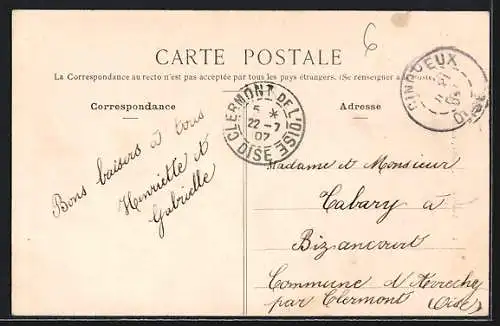 6
CARTE POSTALE
La Correspondance au recto n'est pas acceptée par tous les pays étrangers. (Se renseigner à la Poste.)
Correspondance
Adresse
CLERMONT DE L'OISE
5 *
22 - 7
07
OISE
Bons baisers à tous
Henriette et
Gabrielle
Madame et Monsieur
Tabary à
Bizancourt
Commune d'
par Clermont (Oise)